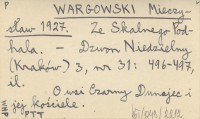 P WARGOWSKI Mieczy- P
sław 1927. Ze Skalnego Pod-
hala. – Dzwon Niedzielny
(Kraków) 3, nr 31: 496-497,
il.
O wsi Czarny Dunajec i
jej kościele.
PTT